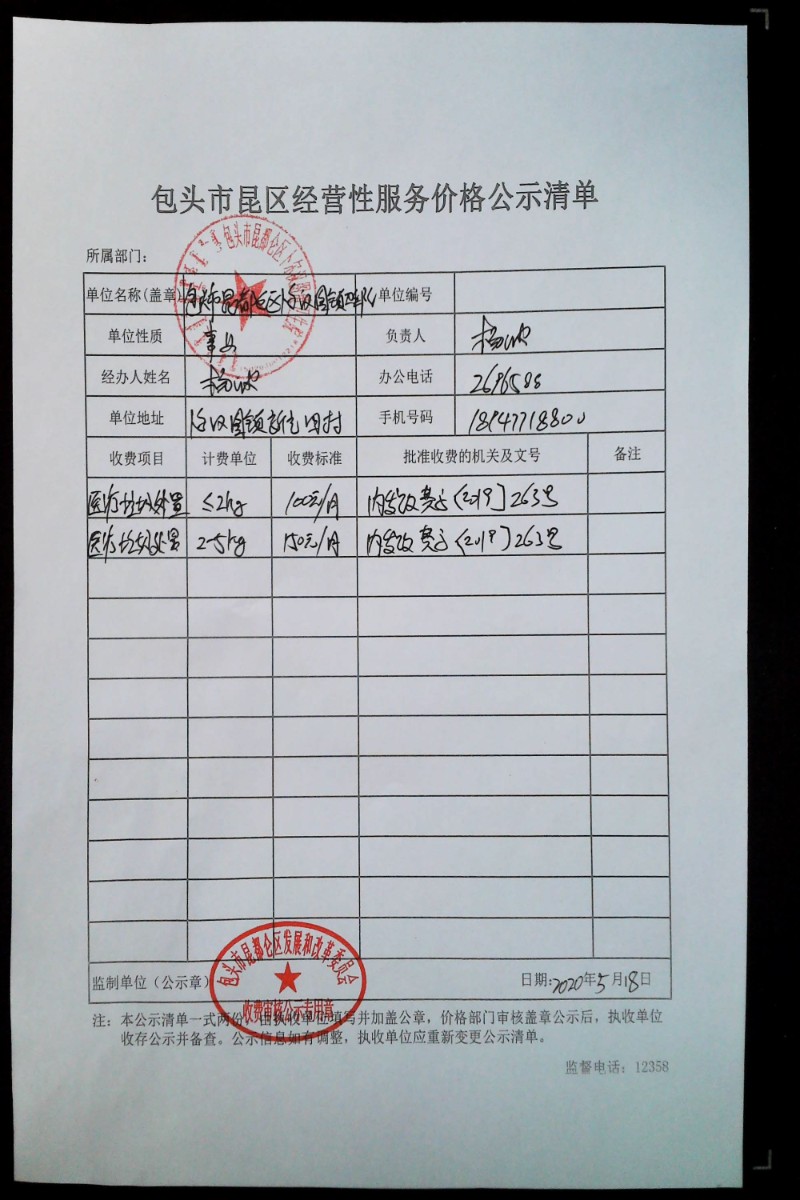 包头市昆区经营性服务价格公示清单
所属部门:
单位名称(盖章) 包头市昆都仑区卜尔汉图镇 单位编号
单位性质 事业 负责人 杨波
经办人姓名 杨波 办公电话 2696588
单位地址 卜尔汉图镇新光 村 手机号码 18947718800
收费项目 计费单位 收费标准 批准收费的机关及文号 备注
医疗垃圾处置 ≤2kg 100元/月 内发改费字〔2019〕263号
医疗垃圾处置 2-5kg 150元/月 内发改费字〔2019〕263号
包头市昆都仑区发展和改革委员会
收费审核公示专用章
监制单位（公示章） 日期:2020年5月18日
注: 本公示清单一式两份，由执收单位填写并加盖公章，价格部门审核盖章公示后，执收单位
收存公示并备查。公示信息如有调整，执收单位应重新变更公示清单。
监督电话: 12358